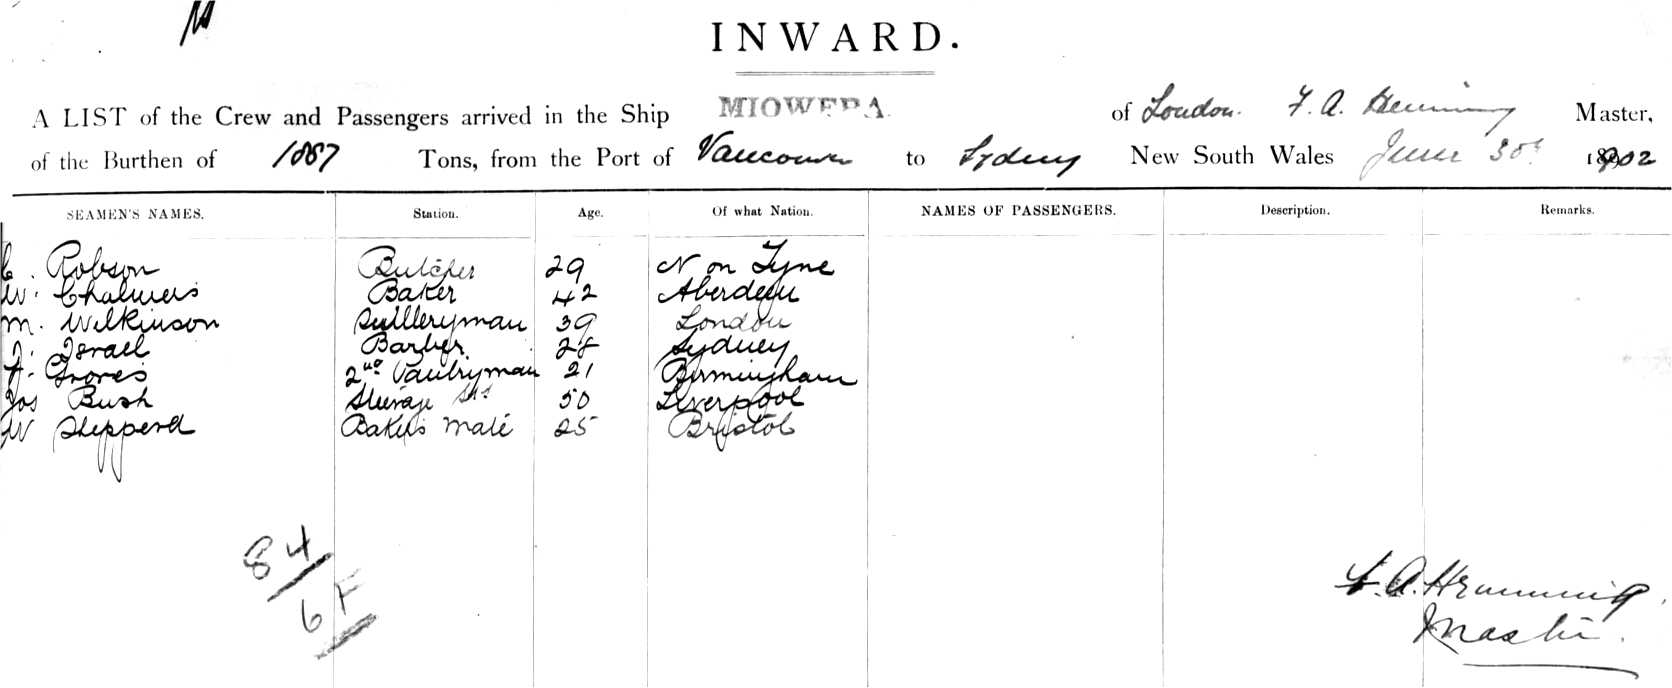 INWARD.
A LIST of the Crew and Passengers arrived in the Ship MIOWERA of London. F. A. Hemming Master,
of the Burthen of 1887 Tons, from the Port of Vancouver to Sydney New South Wales June 30th 1902
SEAMEN'S NAMES. Station. Age. Of what Nation. NAMES OF PASSENGERS. Description. Remarks.
C. Robson Butcher 29 N on Tyne
W. Chalmers Baker 42 Aberdeen
M. Wilkinson Sculleryman 39 London
J. Israel Barber 28 Sydney
F. Groves 2nd Pantryman 21 Birmingham
Jos Bush Steerage Sts 50 Liverpool
W Shepperd Bakers Mate 25 Bristol
84
6 F
F. A. Hemming
Master.